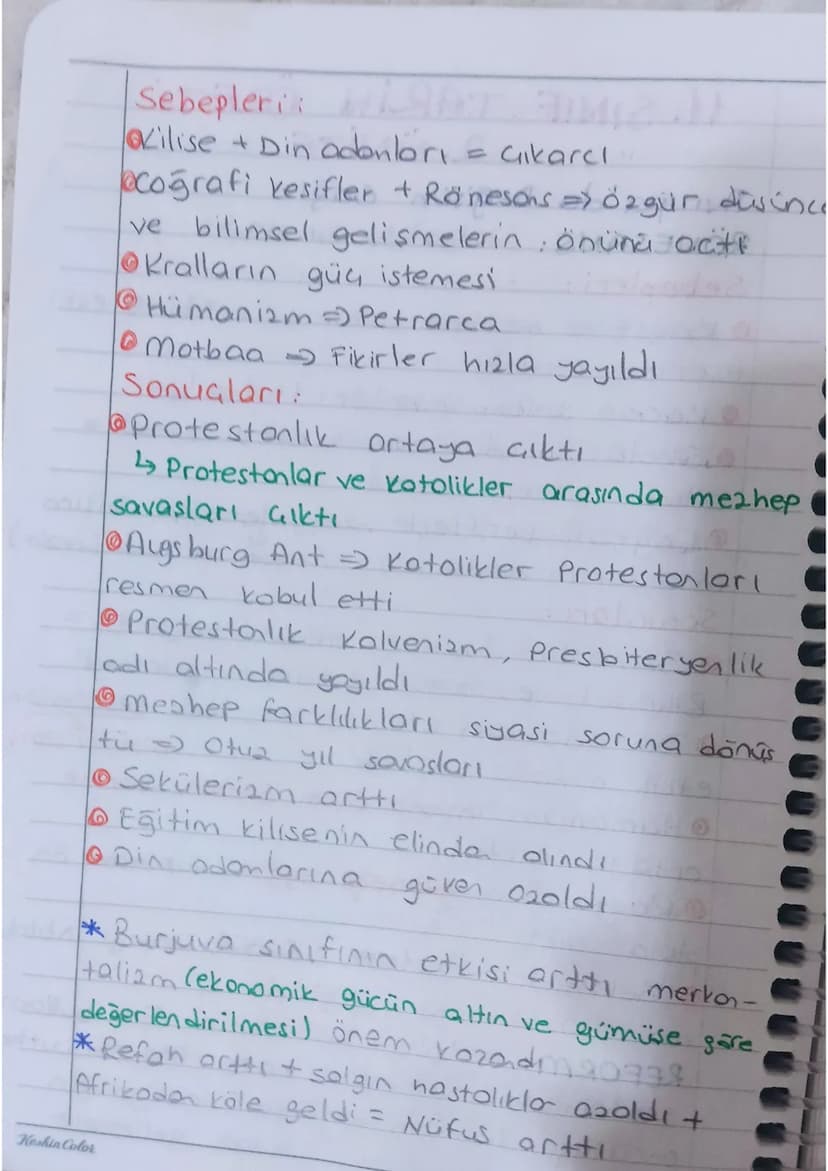 Sebepleri:
Kilise + Din adamları = Çıkarcı
Coğrafi Keşifler + Rönesans => Özgür düşünce
ve bilimsel gelişmelerin önünü açtı
Kralların güç istemesi
Hümanizm => Petrarca
Matbaa => Fikirler hızla yayıldı
Sonuçları:
Protestanlık ortaya çıktı
↳ Protestanlar ve Katolikler arasında mezhep
savaşları çıktı
Augsburg Ant => Katolikler Protestanları
resmen kabul etti
Protestanlık Kalvenizm, Presbiteryenlik
adı altında yayıldı
Mezhep farklılıkları siyasi soruna dönüş
tü => Otuz yıl savaşları
Sekülerizm arttı
Eğitim kilisenin elinden alındı
Din adamlarına güven azaldı
* Burjuva sınıfının etkisi arttı merkan-
talizm (ekonomik gücün altın ve gümüşe göre
değerlendirilmesi) önem kazandı
* Refah arttı + salgın hastalıklar azaldı +
Afrikadan köle geldi = Nüfus arttı
Keskin Color